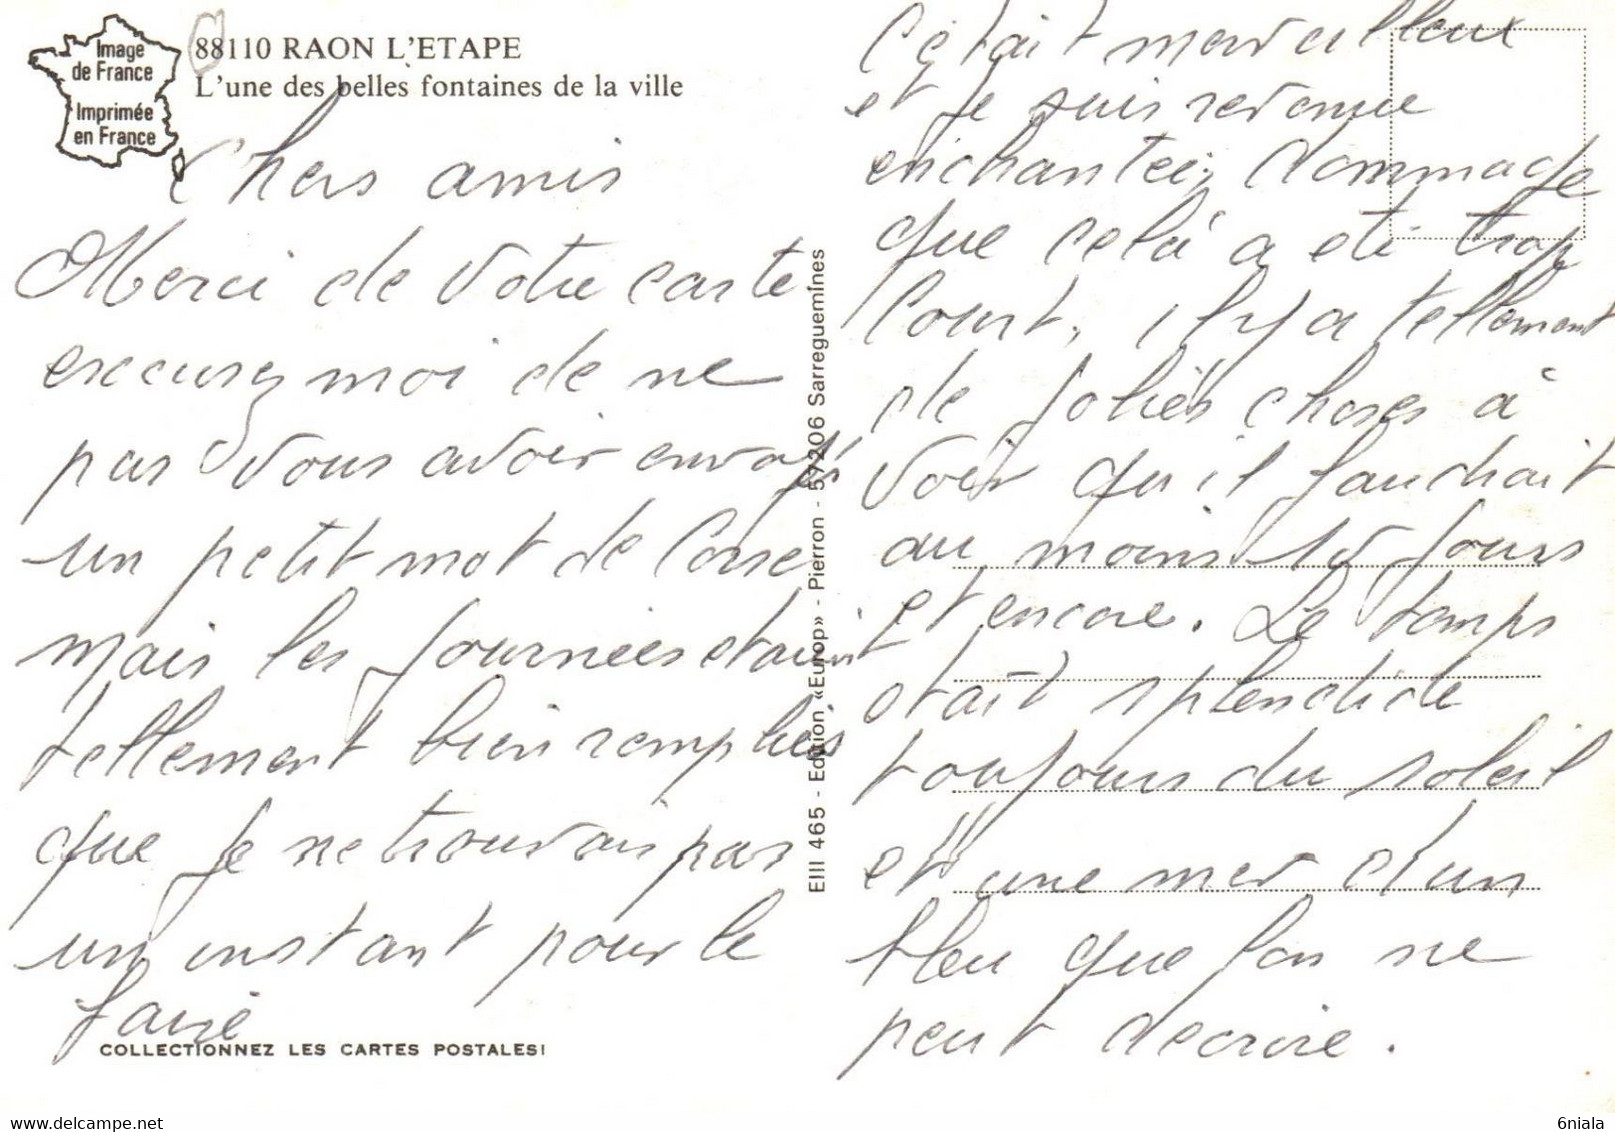 Image
de France
Imprimée
en France
88110 RAON L'ETAPE
L'une des belles fontaines de la ville
Chers amis
Merci de votre carte
excusez moi de ne
pas vous avoir envoyé
un petit mot de Corse
mais les journées etaient
tellement bien remplies
que je ne trouvais pas
un instant pour le
faire
COLLECTIONNEZ LES CARTES POSTALES!
EIII 465 - Edition «Europ» - Pierron - 57206 Sarreguemines
C'etait merveilleux
et je suis revenue
enchantée; dommage
que celà a eté trop
Court, il y a tellement
de jolies choses à
voir qu'il faudrait
au moins 10 jours
et encore. Le temps
etait splendide
toujours du soleil
et une mer d'un
bleu que l'on ne
peut decrire.
6niala
www.delcampe.net